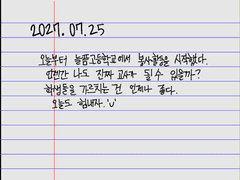 2027.07.25
오늘부터 늘품고등학교에서 봉사활동을 시작했다.
언젠간 나도 진짜 교사가 될 수 있을까?
학생들을 가르치는 건 언제나 좋다.
오늘도 힘내자. 'U'